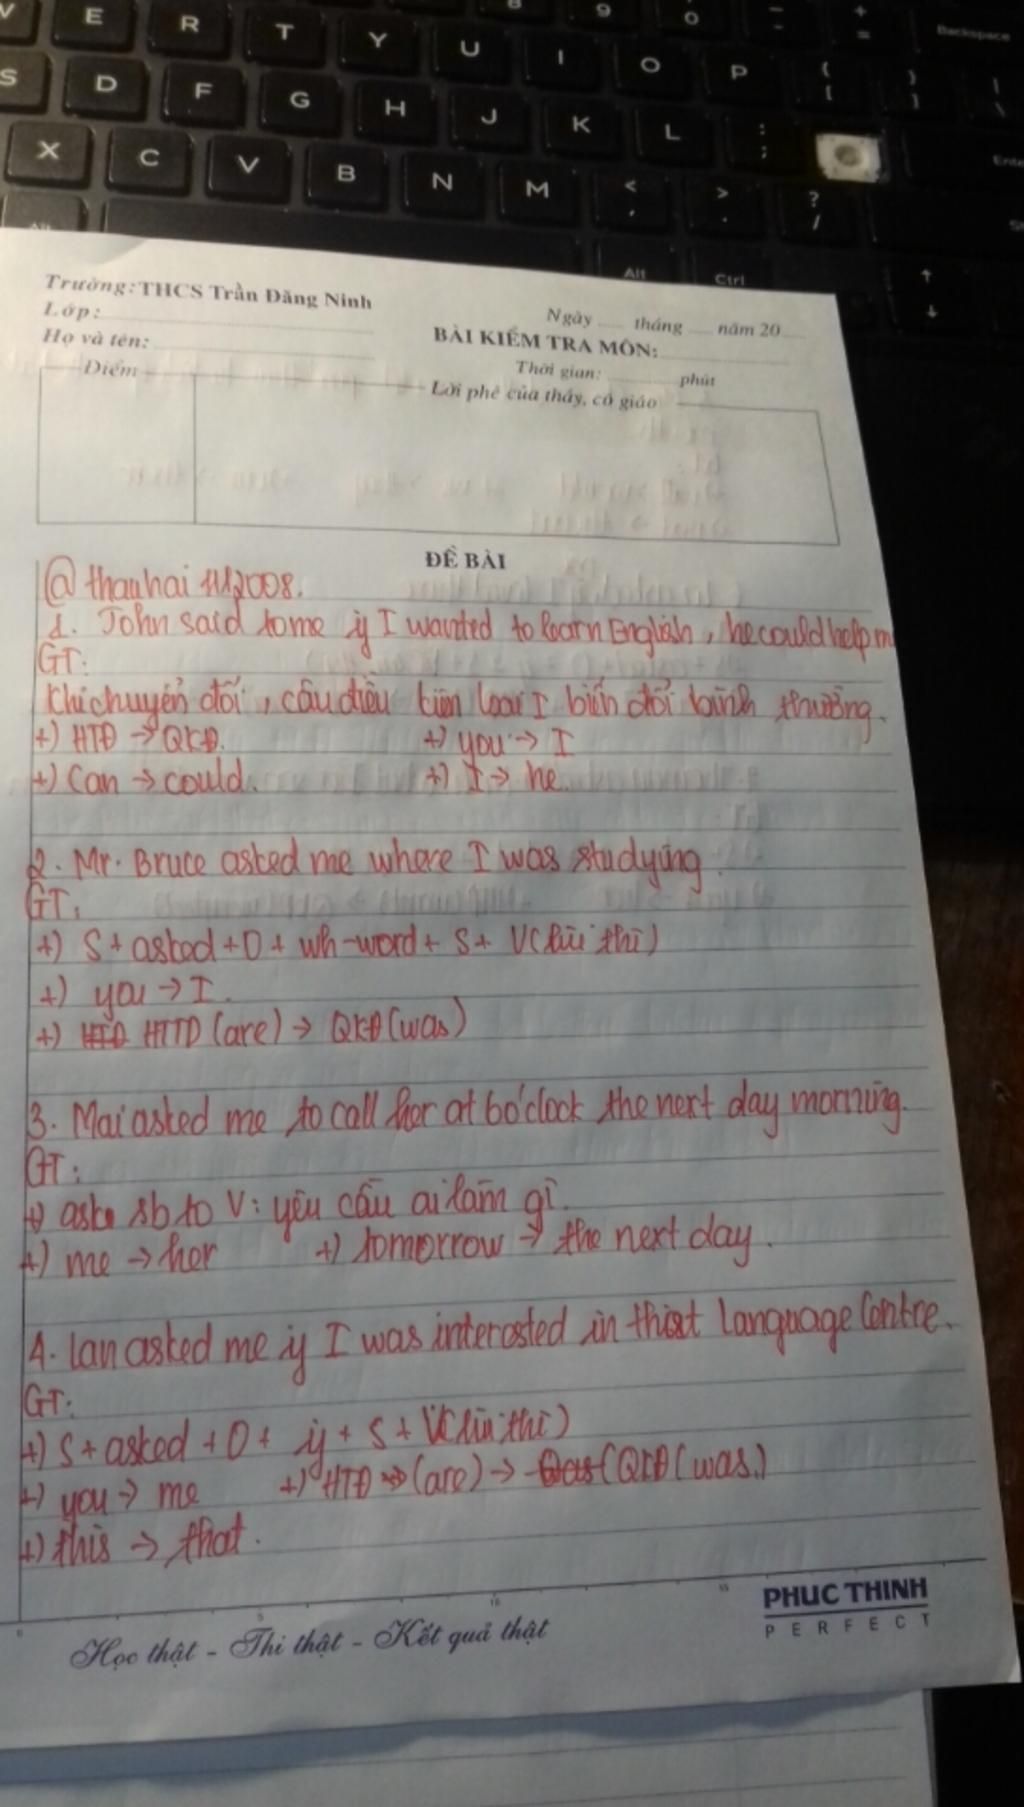 V E R T Y U I O P Backspace
8 9 0 - + =
S D F G H J K L : ; Ente
X C V B N M < , > . ? /
Alt Alt Ctrl
Trường: THCS Trần Đăng Ninh
Lớp:
Họ và tên:
Ngày tháng năm 20
BÀI KIỂM TRA MÔN:
Thời gian: phút
Điểm
Lời phê của thầy, cô giáo
ĐỀ BÀI
@ thanhai 112008.
1. John said to me if I wanted to learn English, he could help m
GT:
Khi chuyển đổi, câu điều kiện loại I biến đổi bình thường.
+) HTĐ → QKĐ. +) you → I
+) Can → could. +) I → he.
2. Mr. Bruce asked me where I was studying.
GT:
+) S + asked + O + wh-word + S + V(lùi thì)
+) you → I.
+) HTĐ HTTD (are) → QKĐ (was)
3. Mai asked me to call her at 6 o'clock the next day morning.
GT:
+) ask sb to V: yêu cầu ai làm gì.
+) me → her +) tomorrow → the next day.
4. Lan asked me if I was interested in that language centre.
GT:
+) S + asked + O + if + S + V(lùi thì)
+) you → me +) HTĐ (are) → QKĐ (was)
+) this → that.
5 10 15
Học thật - Thi thật - Kết quả thật
PHUC THINH
PERFECT